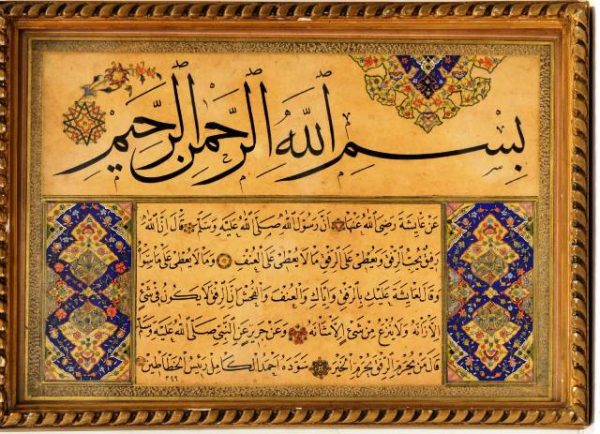 بِسْمِ اللهِ الرَّحْمٰنِ الرَّحِيمِ
عَنْ عَائِشَةَ رَضِيَ اللهُ عَنْهَا أَنَّ رَسُولَ اللهِ صَلَّى اللهُ عَلَيْهِ وَسَلَّمَ قَالَ إِنَّ اللهَ
رَفِيقٌ يُحِبُّ الرِّفْقَ وَيُعْطِي عَلَى الرِّفْقِ مَا لَا يُعْطِي عَلَى الْعُنْفِ وَمَا لَا يُعْطِي عَلَى مَا سِوَاهُ
وَقَالَ لِعَائِشَةَ عَلَيْكِ بِالرِّفْقِ وَإِيَّاكِ وَالْعُنْفَ وَالْفُحْشَ إِنَّ الرِّفْقَ لَا يَكُونُ فِي شَيْءٍ
إِلَّا زَانَهُ وَلَا يُنْزَعُ مِنْ شَيْءٍ إِلَّا شَانَهُ وَعَنْ جَرِيرٍ عَنِ النَّبِيِّ صَلَّى اللهُ عَلَيْهِ وَسَلَّمَ
قَالَ مَنْ يُحْرَمِ الرِّفْقَ يُحْرَمِ الْخَيْرَ سَوَّدَهُ أَحْمَدُ الْكَامِلُ رَئِيسُ الْخَطَّاطِينَ